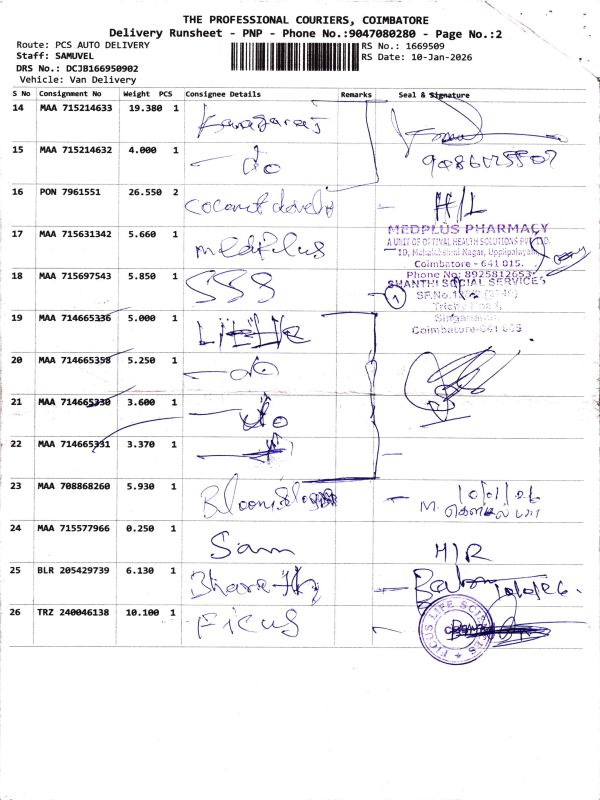 THE PROFESSIONAL COURIERS, COIMBATORE
Delivery Runsheet - PNP - Phone No.:9047080280 - Page No.:2
Route: PCS AUTO DELIVERY
RS No.: 1669509
Staff: SAMUVEL
RS Date: 10-Jan-2026
DRS No.: DCJB166950902
Vehicle: Van Delivery
S No Consignment No Weight PCS Consignee Details Remarks Seal & Signature
14 MAA 715214633 19.380 1 Kanagaraj
15 MAA 715214632 4.000 1 do
16 PON 7961551 26.550 2 coconut H/L
17 MAA 715631342 5.660 1 medplus
MEDPLUS PHARMACY
A UNIT OF OPTIVAL HEALTH SOLUTIONS PVT. LTD.
10, Mahalakshmi Nagar, Uppilipalayam,
Coimbatore - 641 015.
Phone No: 8925812653
18 MAA 715697543 5.850 1 SSS
SHANTHI SOCIAL SERVICES
1
SF.No.
Trichy Road,
Singanallur
Coimbatore-641 005
19 MAA 714665336 5.000 1
20 MAA 714665358 5.250 1 do
21 MAA 714665330 3.600 1 do
22 MAA 714665331 3.370 1
23 MAA 708868260 5.930 1 10/01/26
M.
24 MAA 715577966 0.250 1 Sam H/R
25 BLR 205429739 6.130 1 10/1/26.
26 TRZ 240046138 10.100 1 Ficus
FICUS LIFE SCIENCES